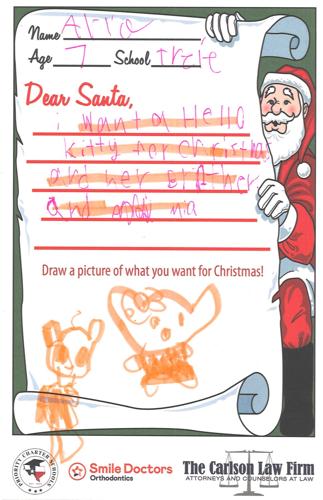 Name Allie
Age 7 School Trcie
Dear Santa,
i want a Hello
kitty for christma
and her brather
and mia
Draw a picture of what you want for Christmas!
PRIORITY CHARTER SCHOOLS
Smile Doctors
Orthodontics
The Carlson Law Firm
ATTORNEYS AND COUNSELORS AT LAW